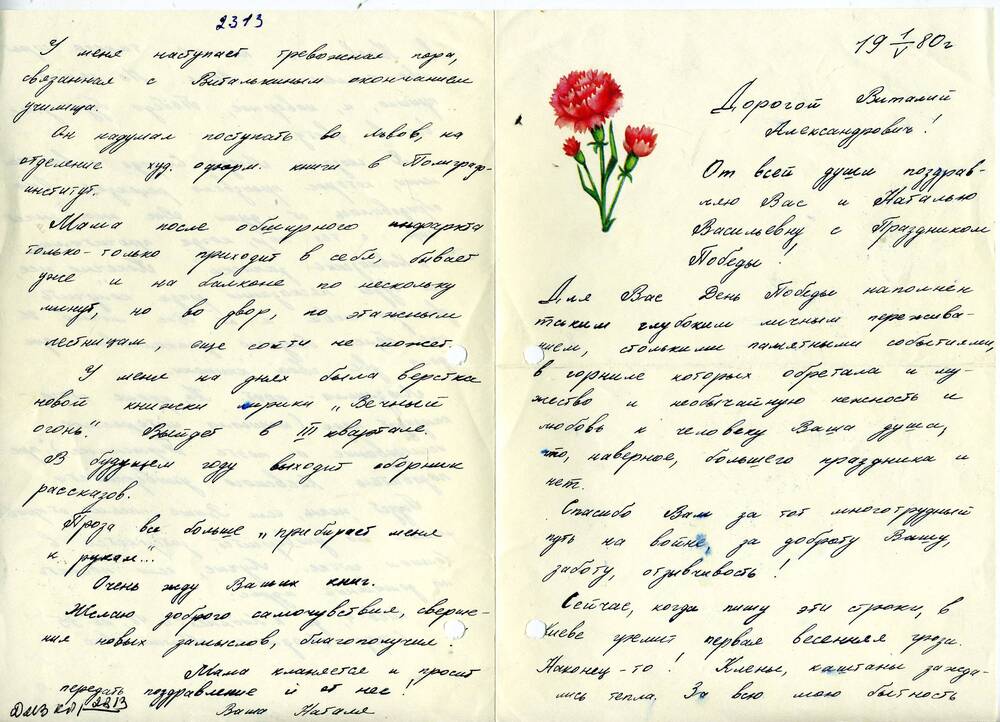 19 1/V 80 г
Дорогой Виталий
Александрович!
От всей души поздрав-
ляю Вас и Наталью
Васильевну с Праздником
Победы!
Для Вас День Победы наполнен
таким глубоким личным пережива-
нием, столькими памятными событиями,
в горниле которых обретала и му-
жество и необычайную нежность и
любовь к человеку Ваша душа,
что, наверное, большего праздника и
нет.
Спасибо Вам за тот многотрудный
путь на войне, за доброту Вашу,
заботу, отзывчивость!
Сейчас, когда пишу эти строки, в
Киеве гремит первая весенняя гроза.
Наконец-то! Клены, каштаны зажда-
лись тепла. За всю мою бытность
2313
У меня наступает тревожная пора,
связанная с Виталькиным окончанием
училища.
Он надумал поступать во Львов, на
отделение худ. оформ. книги в Полиграф-
институт.
Мама после обширного инфаркта
только-только приходит в себя, бывает
уже и на балконе по нескольку
минут, но во двор, по этажным
лестницам, еще сойти не может.
У меня на днях была верстка
новой книжки лирики „Вечный
огонь". Выйдет в III квартале.
В будущем году выходит сборник
рассказов.
Проза все больше „прибирает меня
к рукам"...
Очень жду Ваших книг.
Желаю доброго самочувствия, сверше-
ния новых замыслов, благополучия
Мама кланяется и просит
передать поздравление и от нее!
Ваша Наталя
ДМЗ КП 2313